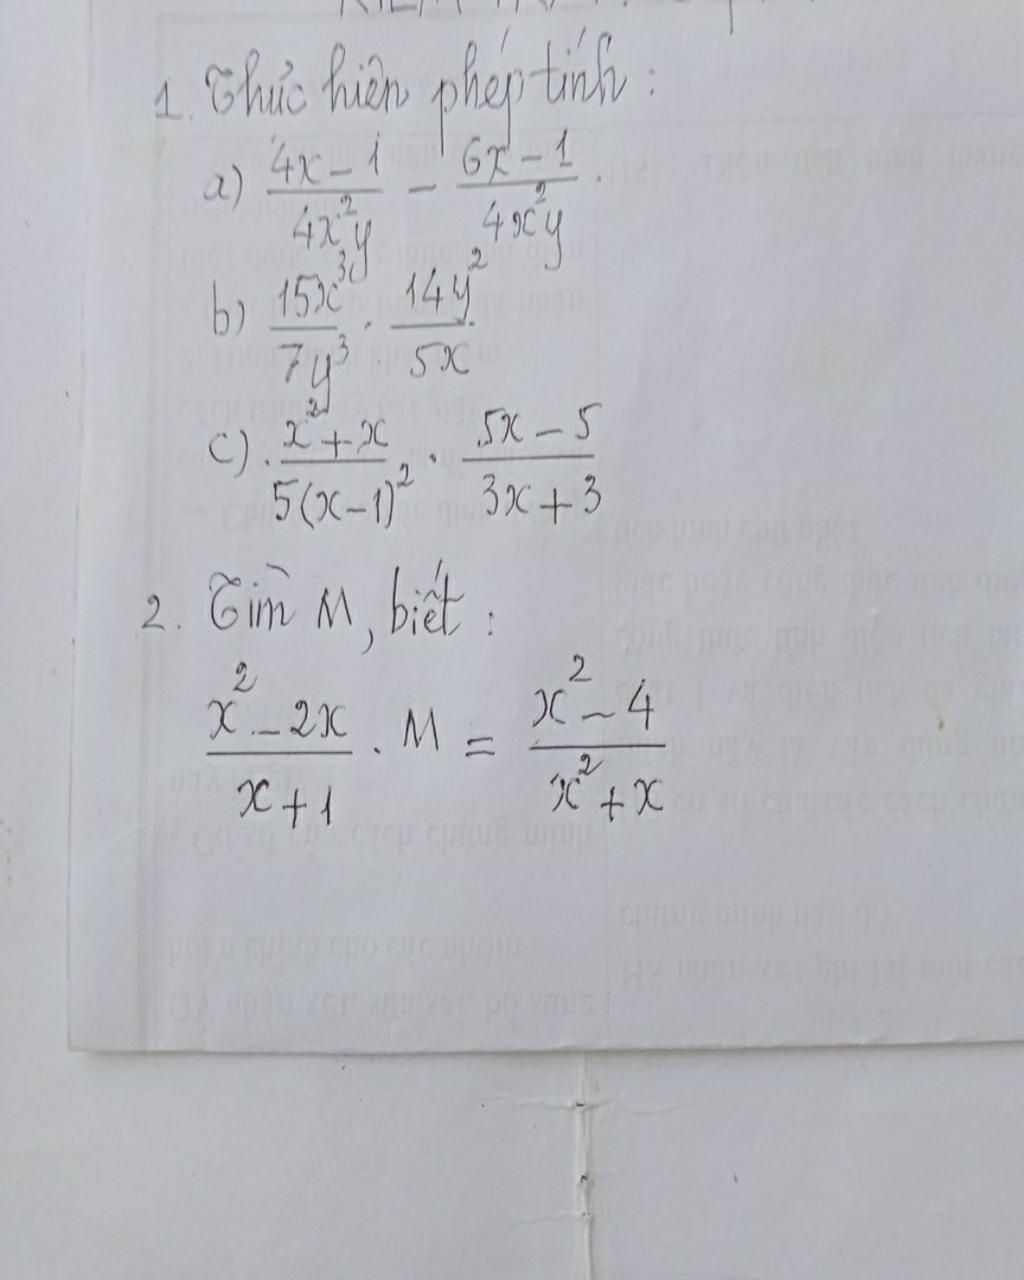 1. Thực hiện phép tính:
a) \frac{4x-1}{4x^2y} - \frac{6x-1}{4x^2y}.
b) \frac{15x^3}{7y^3} \cdot \frac{14y^2}{5x}
c) \frac{x^2+x}{5(x-1)^2} \cdot \frac{5x-5}{3x+3}
2. Tìm M, biết:
\frac{x^2-2x}{x+1} \cdot M = \frac{x^2-4}{x^2+x}